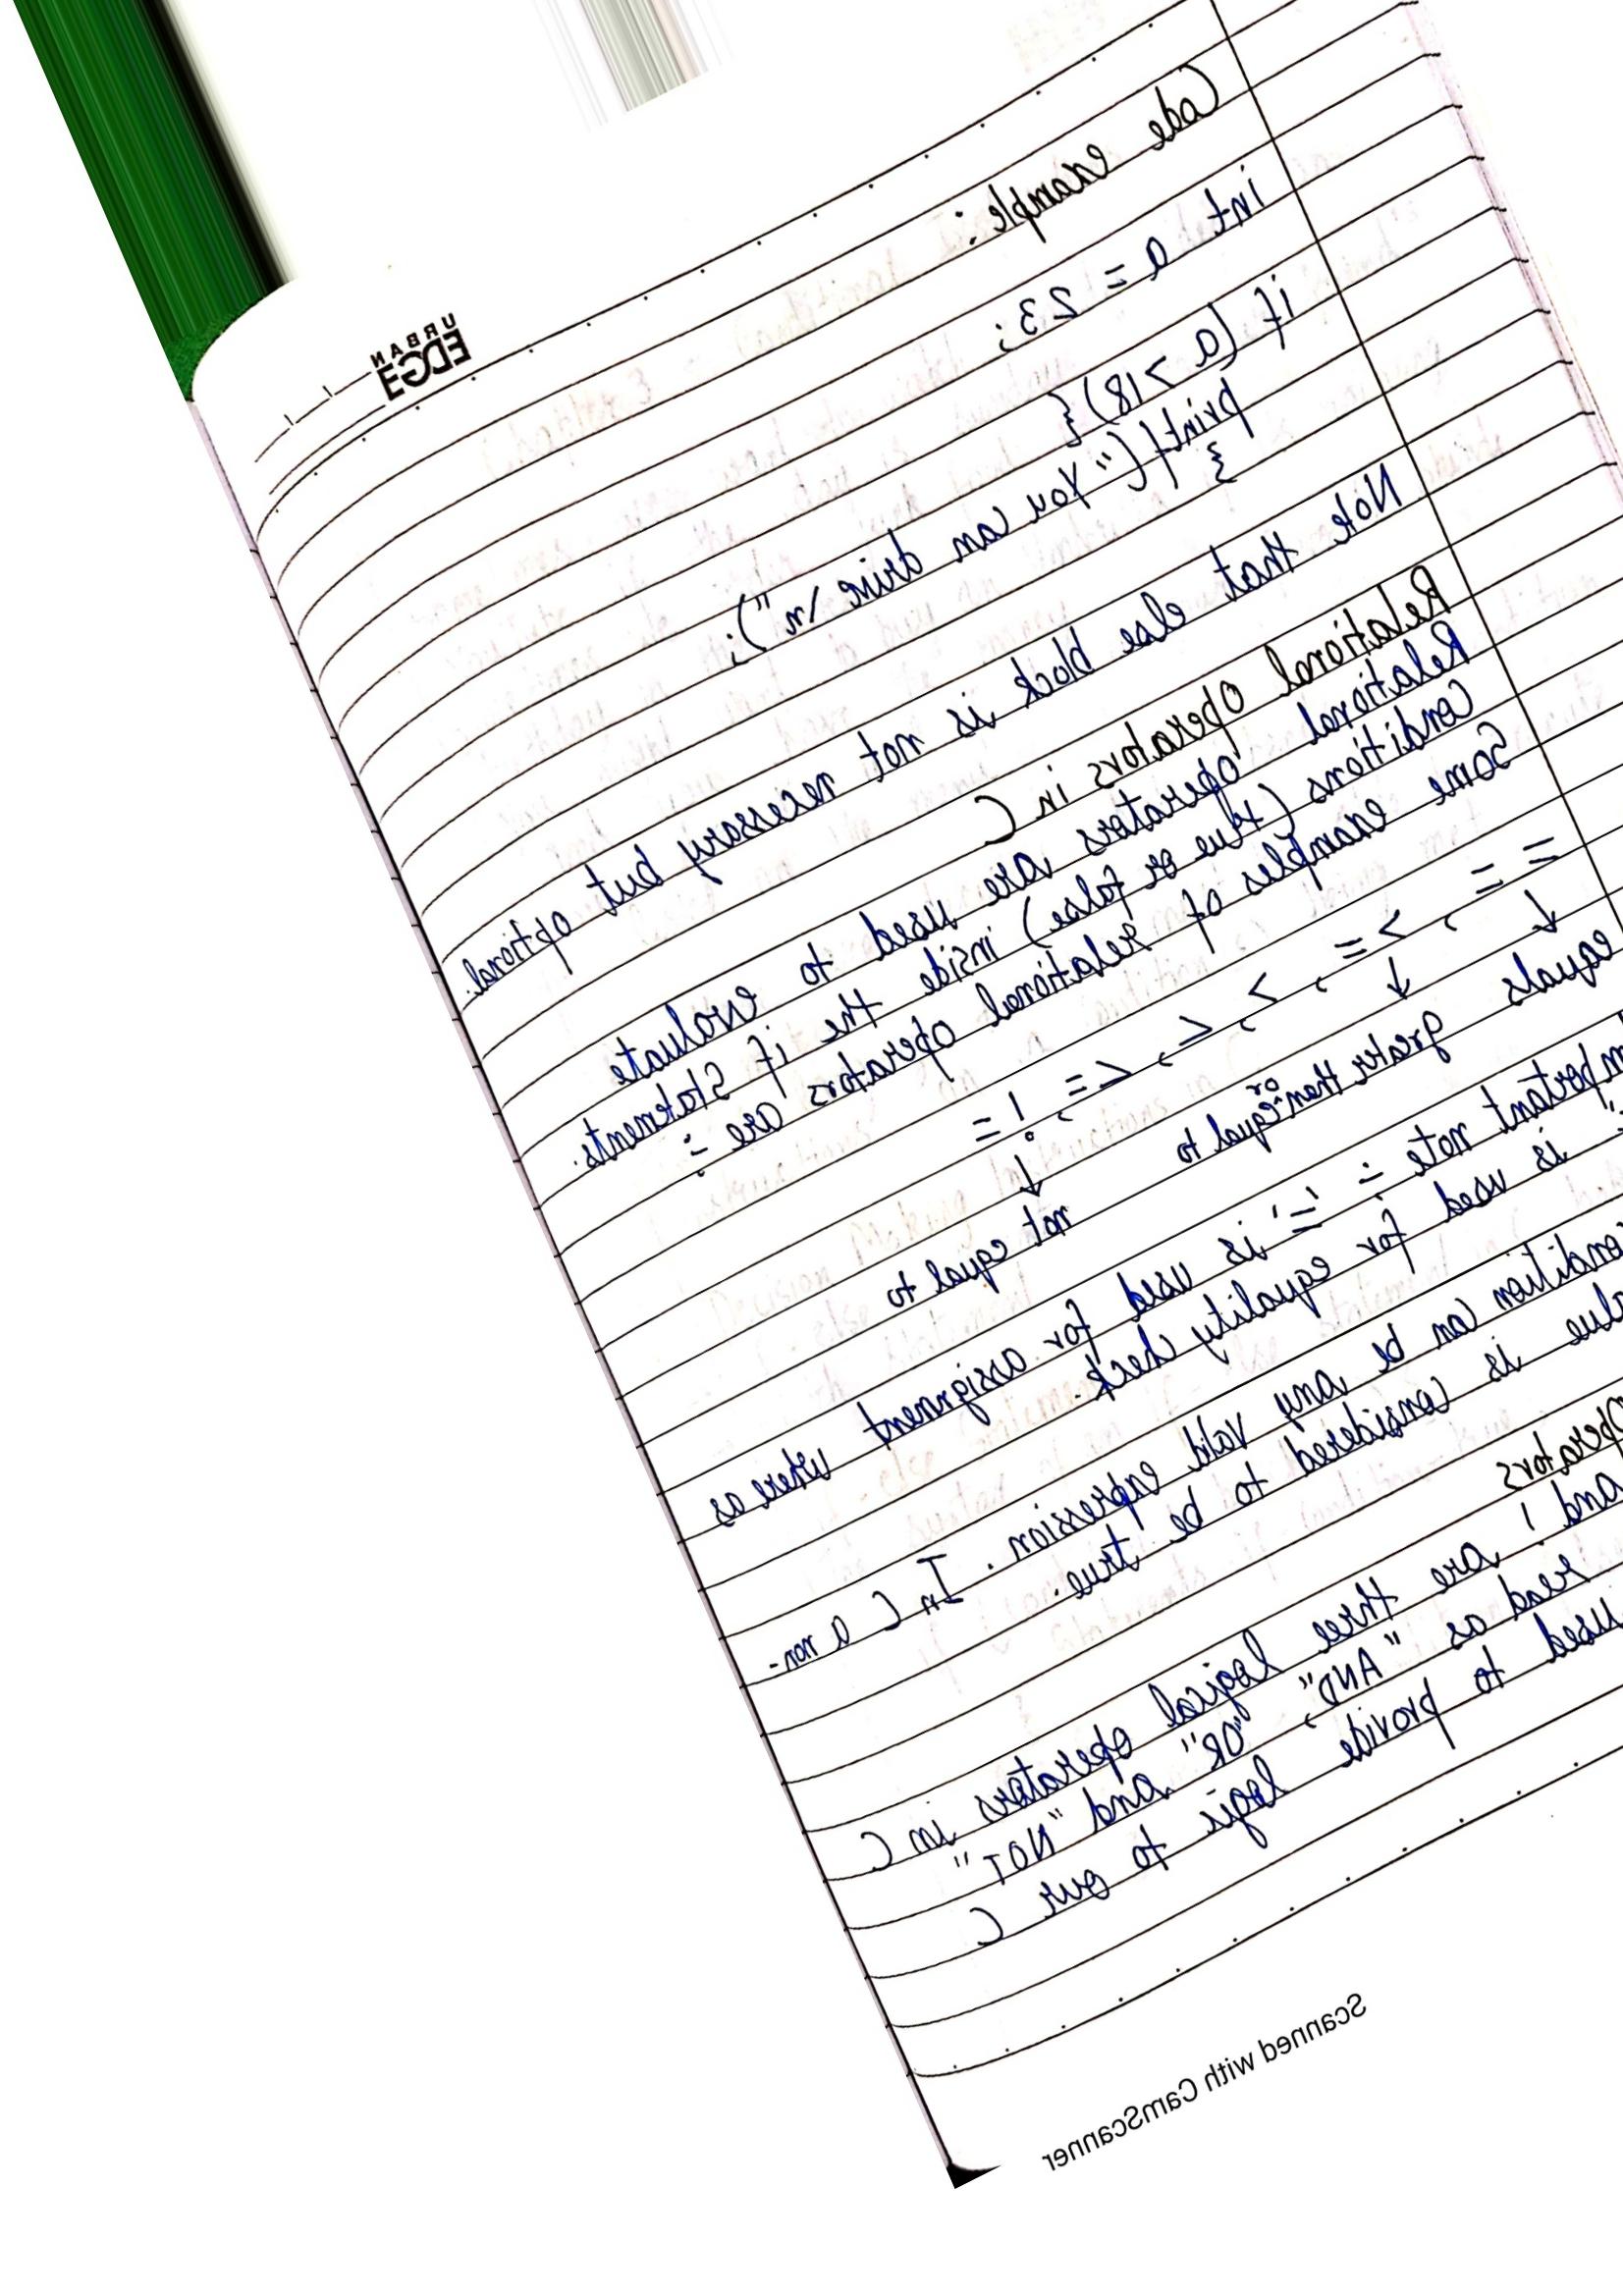 URBAN
EDGE
Code example :
int a = 23;
if (a >18){
printf("You can drive \n");
}
Note that else block is not necessary but optional.
Relational operators in C
Relational operators are used to evaluate
conditions (true or false) inside the if statements.
Some examples of relational operators are :
= = , > = , > , < , < = , ! =
equals greater than or equal to not equal to
mportant note :- '=' is used for assignment where as
" is used for equality check.
ondition can be any valid expression. In C a non-
lue is considered to be true.
operators
and ! are three logical operators in C
read as "AND", "OR" and "NOT"
used to provide logic to our C
Scanned with CamScanner